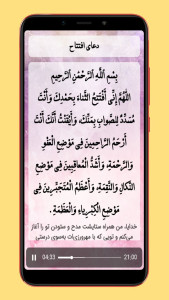 دعای افتتاح
بِسْمِ اللَّهِ الرَّحْمَنِ الرَّحِيمِ
اللَّهُمَّ إِنِّي أَفْتَتِحُ الثَّنَاءَ بِحَمْدِكَ وَ أَنْتَ
مُسَدِّدٌ لِلصَّوَابِ بِمَنِّكَ، وَأَيْقَنْتُ أَنَّكَ أَنْتَ
أَرْحَمُ الرَّاحِمِينَ فِي مَوْضِعِ الْعَفْوِ
وَالرَّحْمَةِ، وَأَشَدُّ الْمُعَاقِبِينَ فِي مَوْضِعِ
النَّكَالِ وَالنَّقِمَةِ، وَأَعْظَمُ الْمُتَجَبِّرِينَ فِي
مَوْضِعِ الْكِبْرِيَاءِ وَالْعَظَمَةِ.
خدایا، من همراه ستایشت مدح و ستودن تو را آغاز
می‌کنم و تویی که با مهرورزی‌ات به‌سوی درستی
04:33 21:00